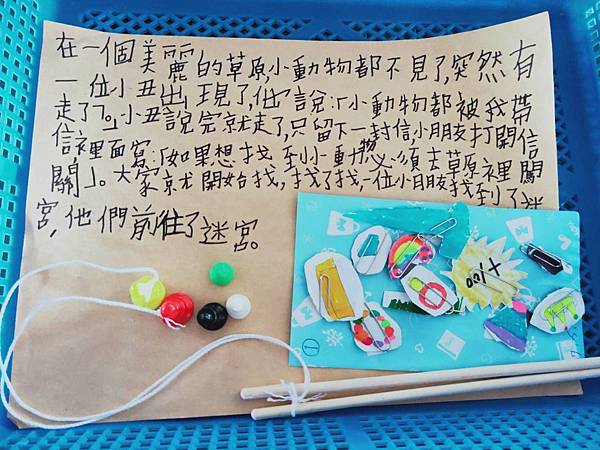 在一個美麗的草原小動物都不見了,突然有
一位小丑出現了,他說:「小動物都被我帶
走了。」小丑說完就走了,只留下一封信,小朋友打開信
信裡面寫:「如果想找到小動物必須去草原裡闖
關」。大家就開始找,找了找,一位小朋友找到了迷
宮,他們前往了迷宮。
+100
1